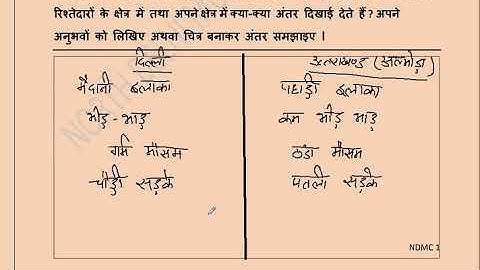 रिश्तेदारों के क्षेत्र में तथा अपने क्षेत्र में क्या-क्या अंतर दिखाई देते हैं ? अपने
अनुभवों को लिखिए अथवा चित्र बनाकर अंतर समझाइए ।
दिल्ली
उत्तराखण्ड (अलमोड़ा)
मैदानी इलाका
पहाड़ी इलाका
भीड़-भाड़
कम भीड़ भाड़
गर्म मौसम
ठंडा मौसम
चौड़ी सड़के
पतली सड़के
NDMC 1